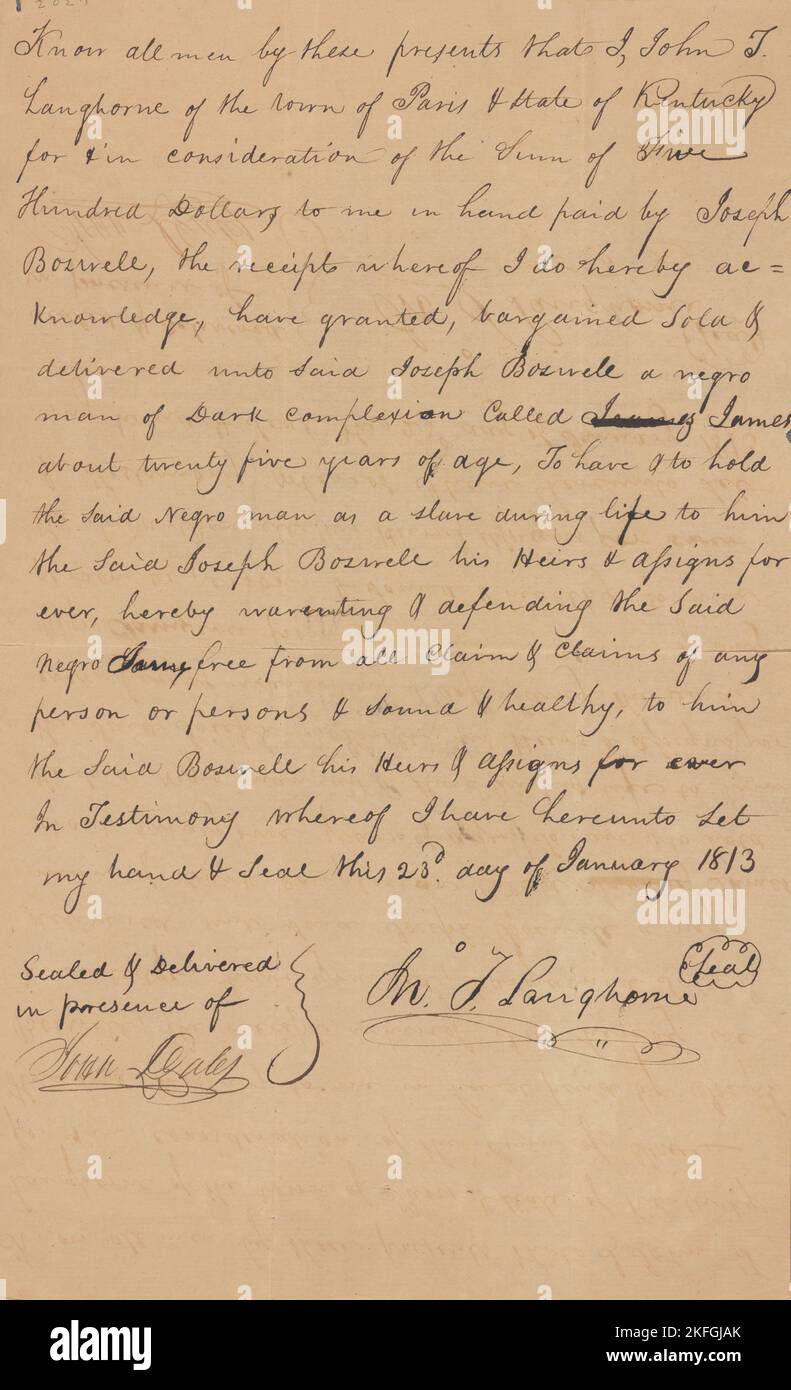 Know all men by these presents that I, John T.
Langhorne of the town of Paris & State of Kentucky
for & in consideration of the Sum of Five
Hundred Dollars to me in hand paid by Joseph
Boswell, the receipt whereof I do hereby ac=
knowledge, have granted, bargained Sold &
delivered unto Said Joseph Boswell a negro
man of Dark complexion Called James
about twenty five years of age, To have & to hold
the Said Negro man as a slave during life to him
the Said Joseph Boswell his Heirs & assigns for
ever, hereby warenting & defending the Said
Negro James free from all Claim & Claims of any
person or persons & Sound & healthy, to him
the Said Boswell his Heirs & assigns for ever
In Testimony whereof I have hereunto Set
my hand & Seal this 23d. day of January 1813
Sealed & Delivered
in presence of
Jno. T. Langhorne
Seal
John
alamy
Image ID: 2KFGJAK
www.alamy.com